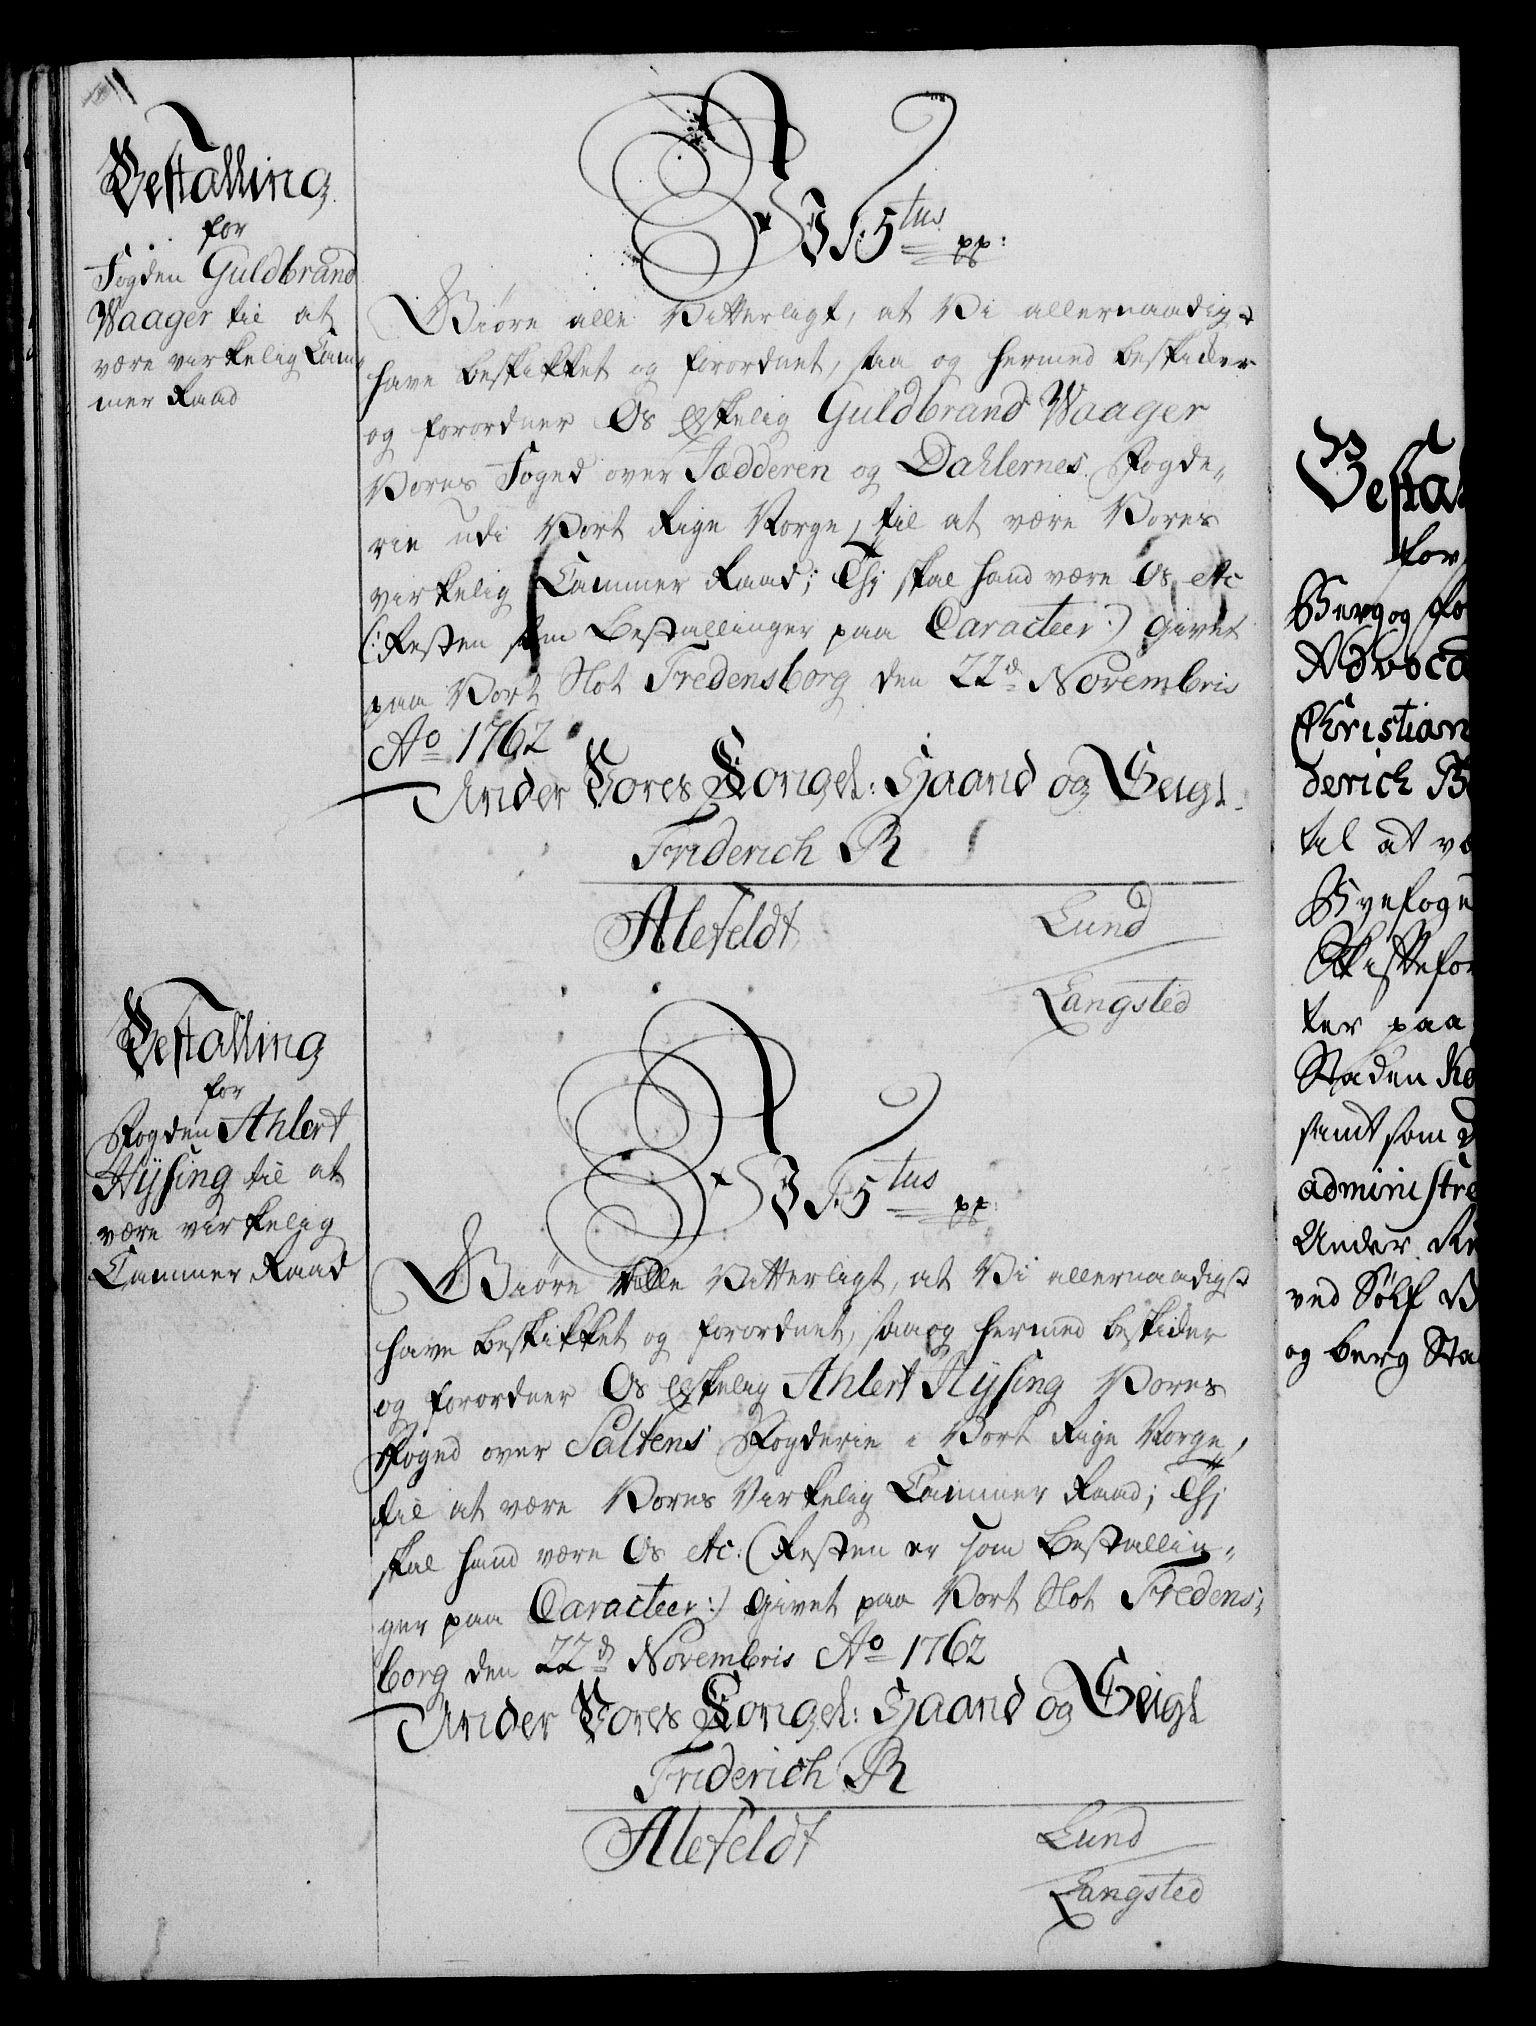 Bestalling
for
Fogden Guldbrand
Waager til at
være virkelig Cam-
mer Raad
F 5tus pp:
Giøre alle Vitterligt, at Vi allernaadigst
have beskikket og forordnet, saa og hermed beskicker
og forordner Os Elskelig Guldbrand Waager
Vores Foged over Jædderen og Dahlernes Fogde-
rie udi Vort Rige Norge, til at være Vores
virkelig Cammer Raad; Thj skal hand være Os etc
(: Resten som Bestallinger paa Caracteer:) Givet
paa Vort Slot Fredensborg den 22d Novembris
Ao 1762
Under Vores Kongel: Haand og Seigl.
Friderich R
Alefeldt
Lund
Langsted
Bestalling
for
Fogden Ahlert
Hysing til at
være virkelig
Cammer Raad
F 5tus pp:
Giøre Alle Vitterligt, at Vi allernaadigst
have beskikket og forordnet, saa og hermed beskicker
og forordner Os Elskelig Ahlert Hysing Vores
Foged over Saltens Fogderie i Vort Rige Norge,
til at være Vores Virkelig Cammer Raad; Thj
skal hand være Os etc: (Resten er som Bestallin-
ger paa Caracteer:) Givet paa Vort Slot Fredens-
borg den 22d Novembris Ao 1762
Under Vores Kongel: Haand og Seigl
Friderich R
Alefeldt
Lund
Langsted
Besta
for
Berg og
Advoca
Christian
derich B
til at væ
Byefoge
Skiftefor
ter paa
Staden Ko
samt som
administre
Under
ved Sølf B
og berg Sta